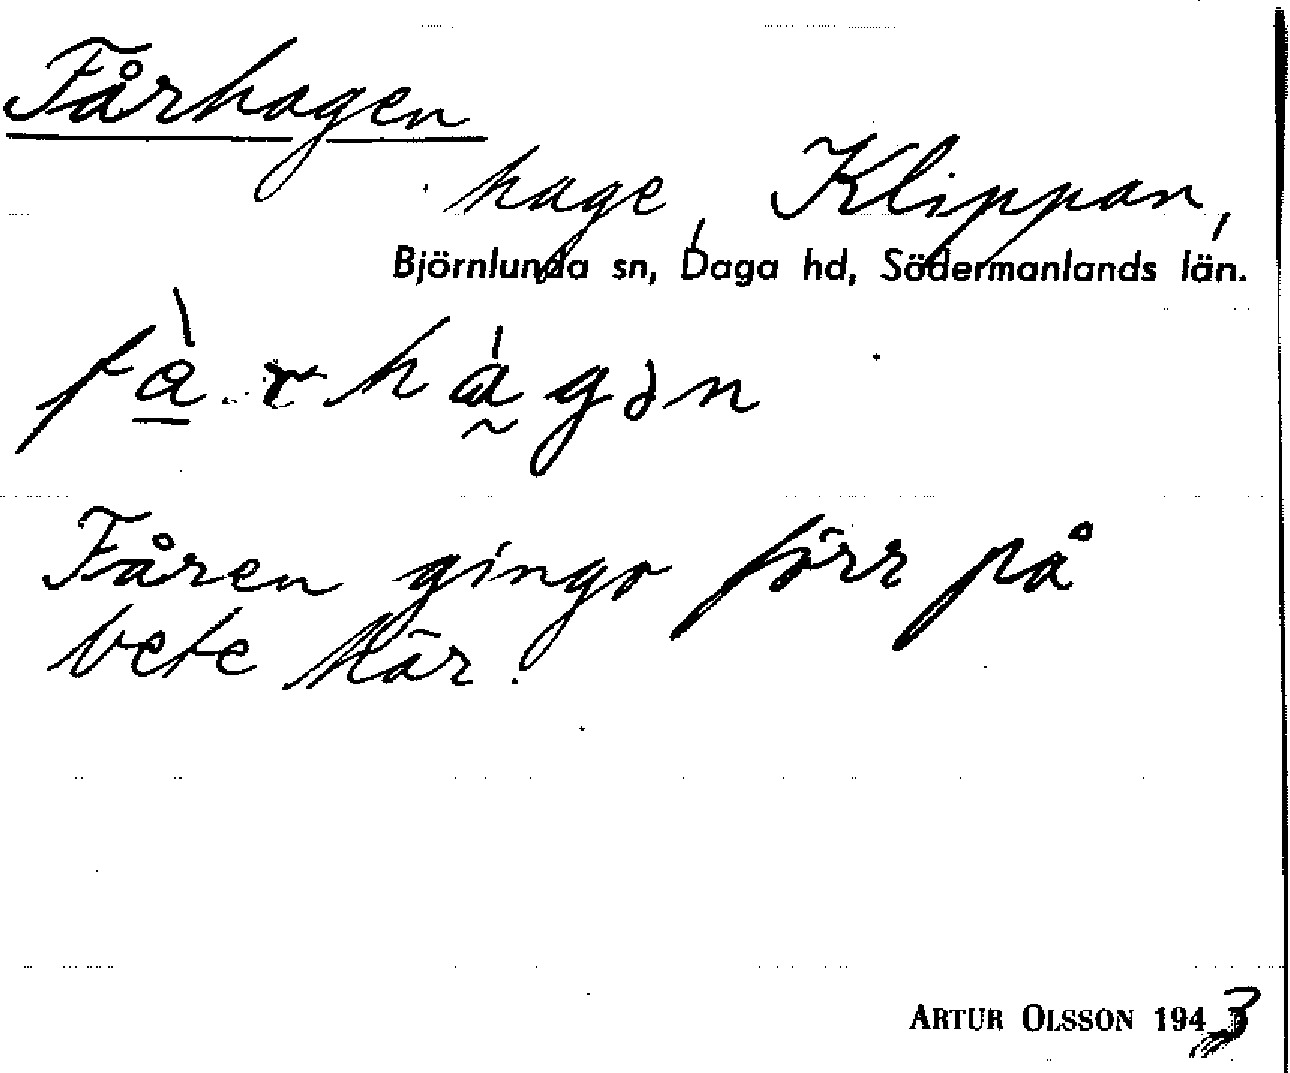 Fårhagen
hage, Klippan,
Björnlunda sn, Daga hd, Södermanlands län.
fàrhágən
Fåren gingo förr på
bete här.
ARTUR OLSSON 1943